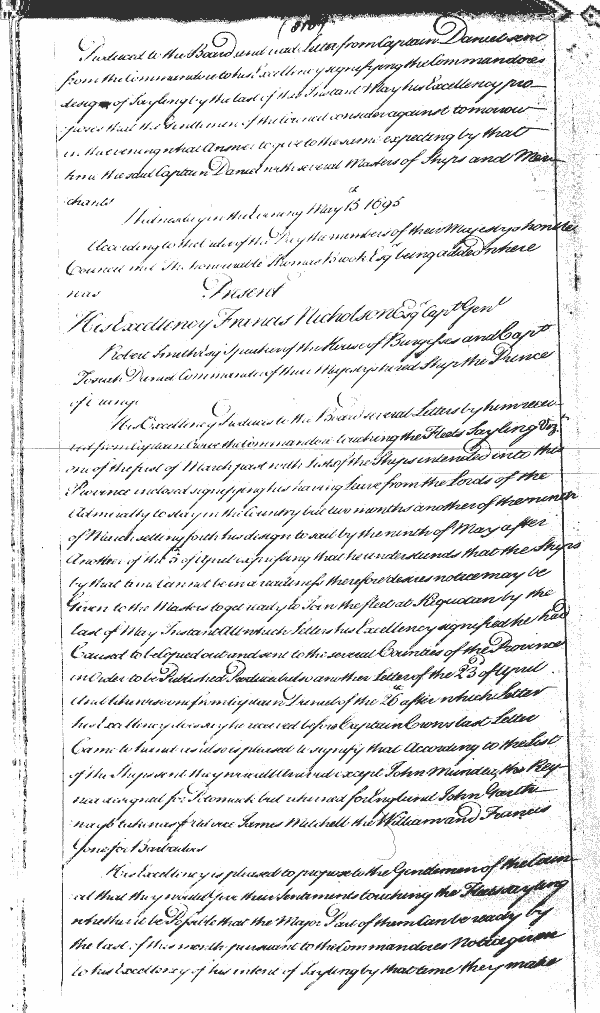 Produced to the Board and read Letter from Captain Daniel sent
from the Commandore to his Excellency signifying the Commandores
design of Sayling by the last of this Instant May his Excellency pro
poses that the Gentlemen of the Councel consider against tomorrow
in the evening what Answer to give to the same expecting by that
time the said Captain Daniel with several Masters of Ships and Mer
chants
Wednesday in the Evening May 15th 1695
According to the Order of the Day the members of their Majestys honble
Council met The honourable Thomas Brook Esqr being added where
was Present
His Excellency Francis Nicholson Esqr Capt Genl
Robert Smith Esqr Speaker of the House of Burgesses and Capt
Josiah Daniel Commander of their Majestys hired Ship the Prince
of Orange
His Excellency Produces to the Board several Letters by him recei
ved from Captain the Commandore touching the Fleets Sayling Vizt
one of the first of March past with List of the Ships intended into this
Province inclosed signifying his having Leave from the Lords of the
Admiralty to stay in the Country but two months another of the
of March setting forth his design to sail by the ninth of May after
Another of the 5 of April expressing that he understands that the Ships
by that time cannot be in a readiness therefore desires notice may be
Given to the Masters to get ready to Join the fleet at Kequotan by the
last of May Instant All which Letters his Excellency signifyed he had
Caused to be Copied out and sent to the several Counties of the Province
in Order to be Published Produced also another Letter of the 23d of April
And likewise one from Captain Daniel of the 26th after which Letter
his Excellency does say he received before Captain last Letter
Came to hand and is also pleased to signify that According to the List
of the Ships sent they were all Arrived except John Munday the
was designed for Potomack but returned for England John
way taken as f James Mitchell the William and Francis
gone for Barbados
His Excellency is pleased to propose to the Gentlemen of the Coun
cil that they would give their Sentiments touching the Fleets sayling
whether it be Possible that the Major Part of them Can be ready by
the last of this month pursuant to the Commandores Notice given
to his Excellency of his intent of Sayling by that time they make